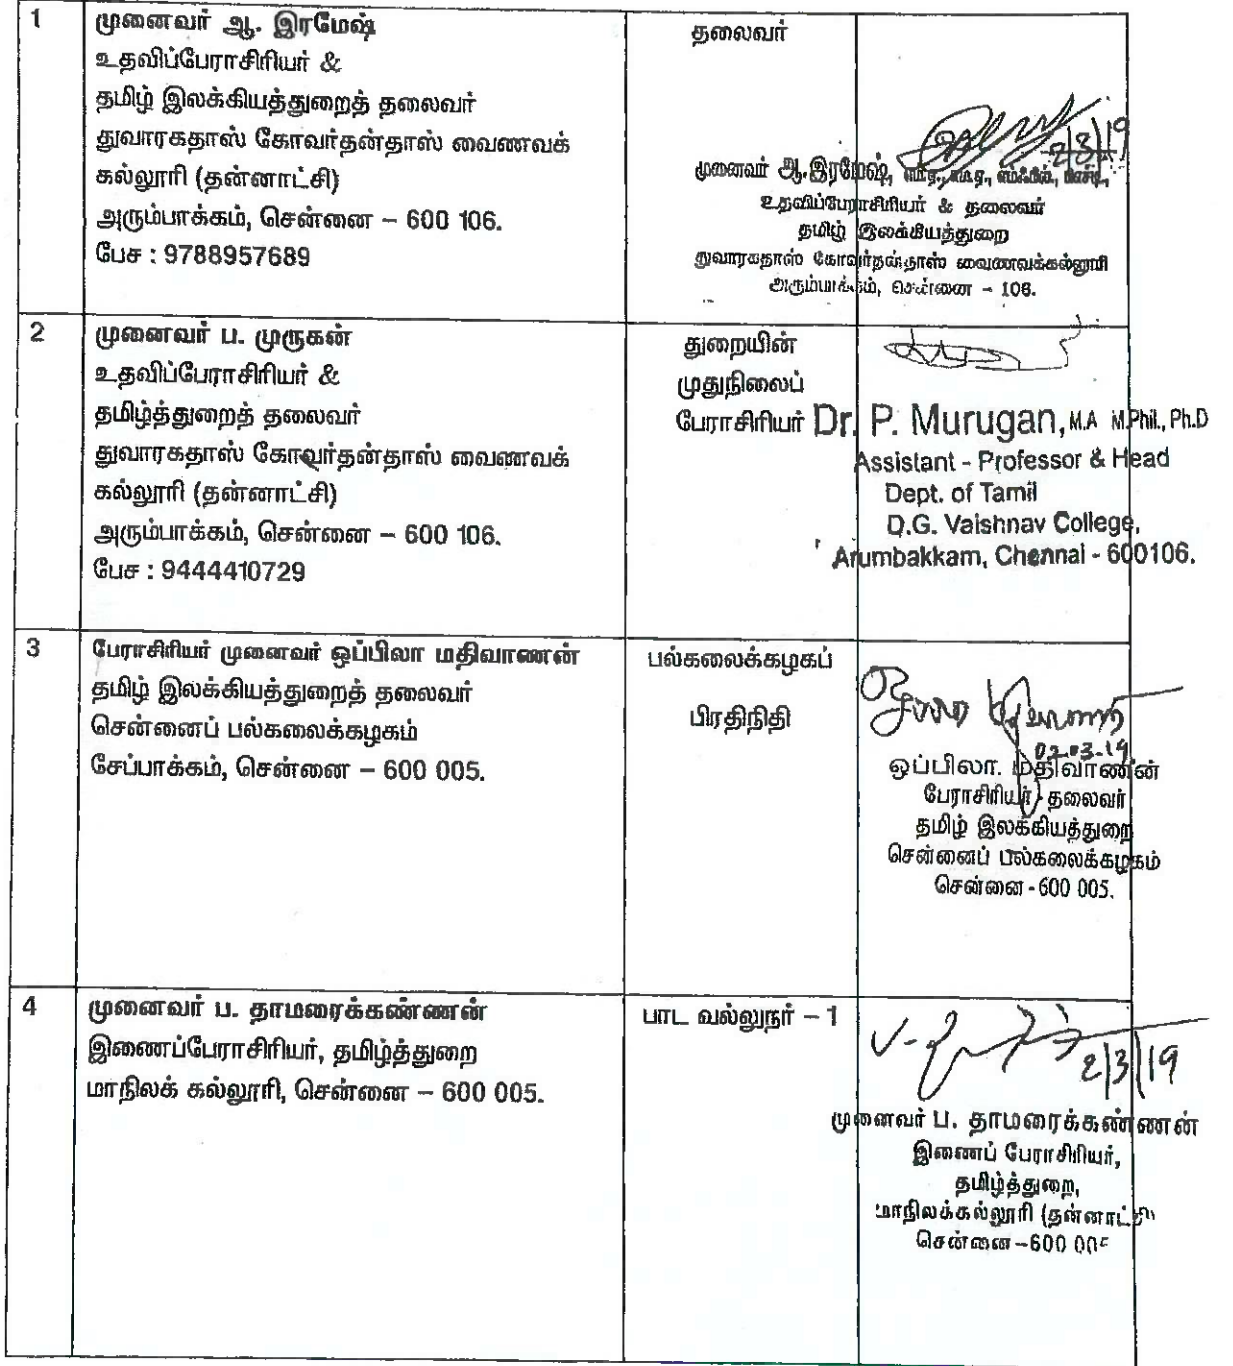 1
முனைவர் ஆ. இரமேஷ்
உதவிப்பேராசிரியர் &
தமிழ் இலக்கியத்துறைத் தலைவர்
துவாரகதாஸ் கோவர்தன்தாஸ் வைணவக்
கல்லூரி (தன்னாட்சி)
அரும்பாக்கம், சென்னை – 600 106.
பேச : 9788957689
தலைவர்
2/3/19
முனைவர் ஆ.இரமேஷ், எம்.ஏ., எம்.ஏ., எம்ஃபில்., பிஎச்டி.,
உதவிப்பேராசிரியர் & தலைவர்
தமிழ் இலக்கியத்துறை
துவாரகதாஸ் கோவர்தன்தாஸ் வைணவக்கல்லூரி
அரும்பாக்கம், சென்னை – 106.
2
முனைவர் ப. முருகன்
உதவிப்பேராசிரியர் &
தமிழ்த்துறைத் தலைவர்
துவாரகதாஸ் கோவர்தன்தாஸ் வைணவக்
கல்லூரி (தன்னாட்சி)
அரும்பாக்கம், சென்னை – 600 106.
பேச : 9444410729
துறையின்
முதுநிலைப்
பேராசிரியர்
Dr. P. Murugan, M.A M.Phil., Ph.D
Assistant - Professor & Head
Dept. of Tamil
D.G. Vaishnav College,
Arumbakkam, Chennai - 600106.
3
பேராசிரியர் முனைவர் ஒப்பிலா மதிவாணன்
தமிழ் இலக்கியத்துறைத் தலைவர்
சென்னைப் பல்கலைக்கழகம்
சேப்பாக்கம், சென்னை – 600 005.
பல்கலைக்கழகப்
பிரதிநிதி
02.03.19
ஒப்பிலா. மதிவாணன்
பேராசிரியர் தலைவர்
தமிழ் இலக்கியத்துறை
சென்னைப் பல்கலைக்கழகம்
சென்னை - 600 005.
4
முனைவர் ப. தாமரைக்கண்ணன்
இணைப்பேராசிரியர், தமிழ்த்துறை
மாநிலக் கல்லூரி, சென்னை – 600 005.
பாட வல்லுநர் – 1
2/3/19
முனைவர் ப. தாமரைக்கண்ணன்
இணைப் பேராசிரியர்,
தமிழ்த்துறை,
மாநிலக்கல்லூரி (தன்னாட்சி)
சென்னை – 600 005